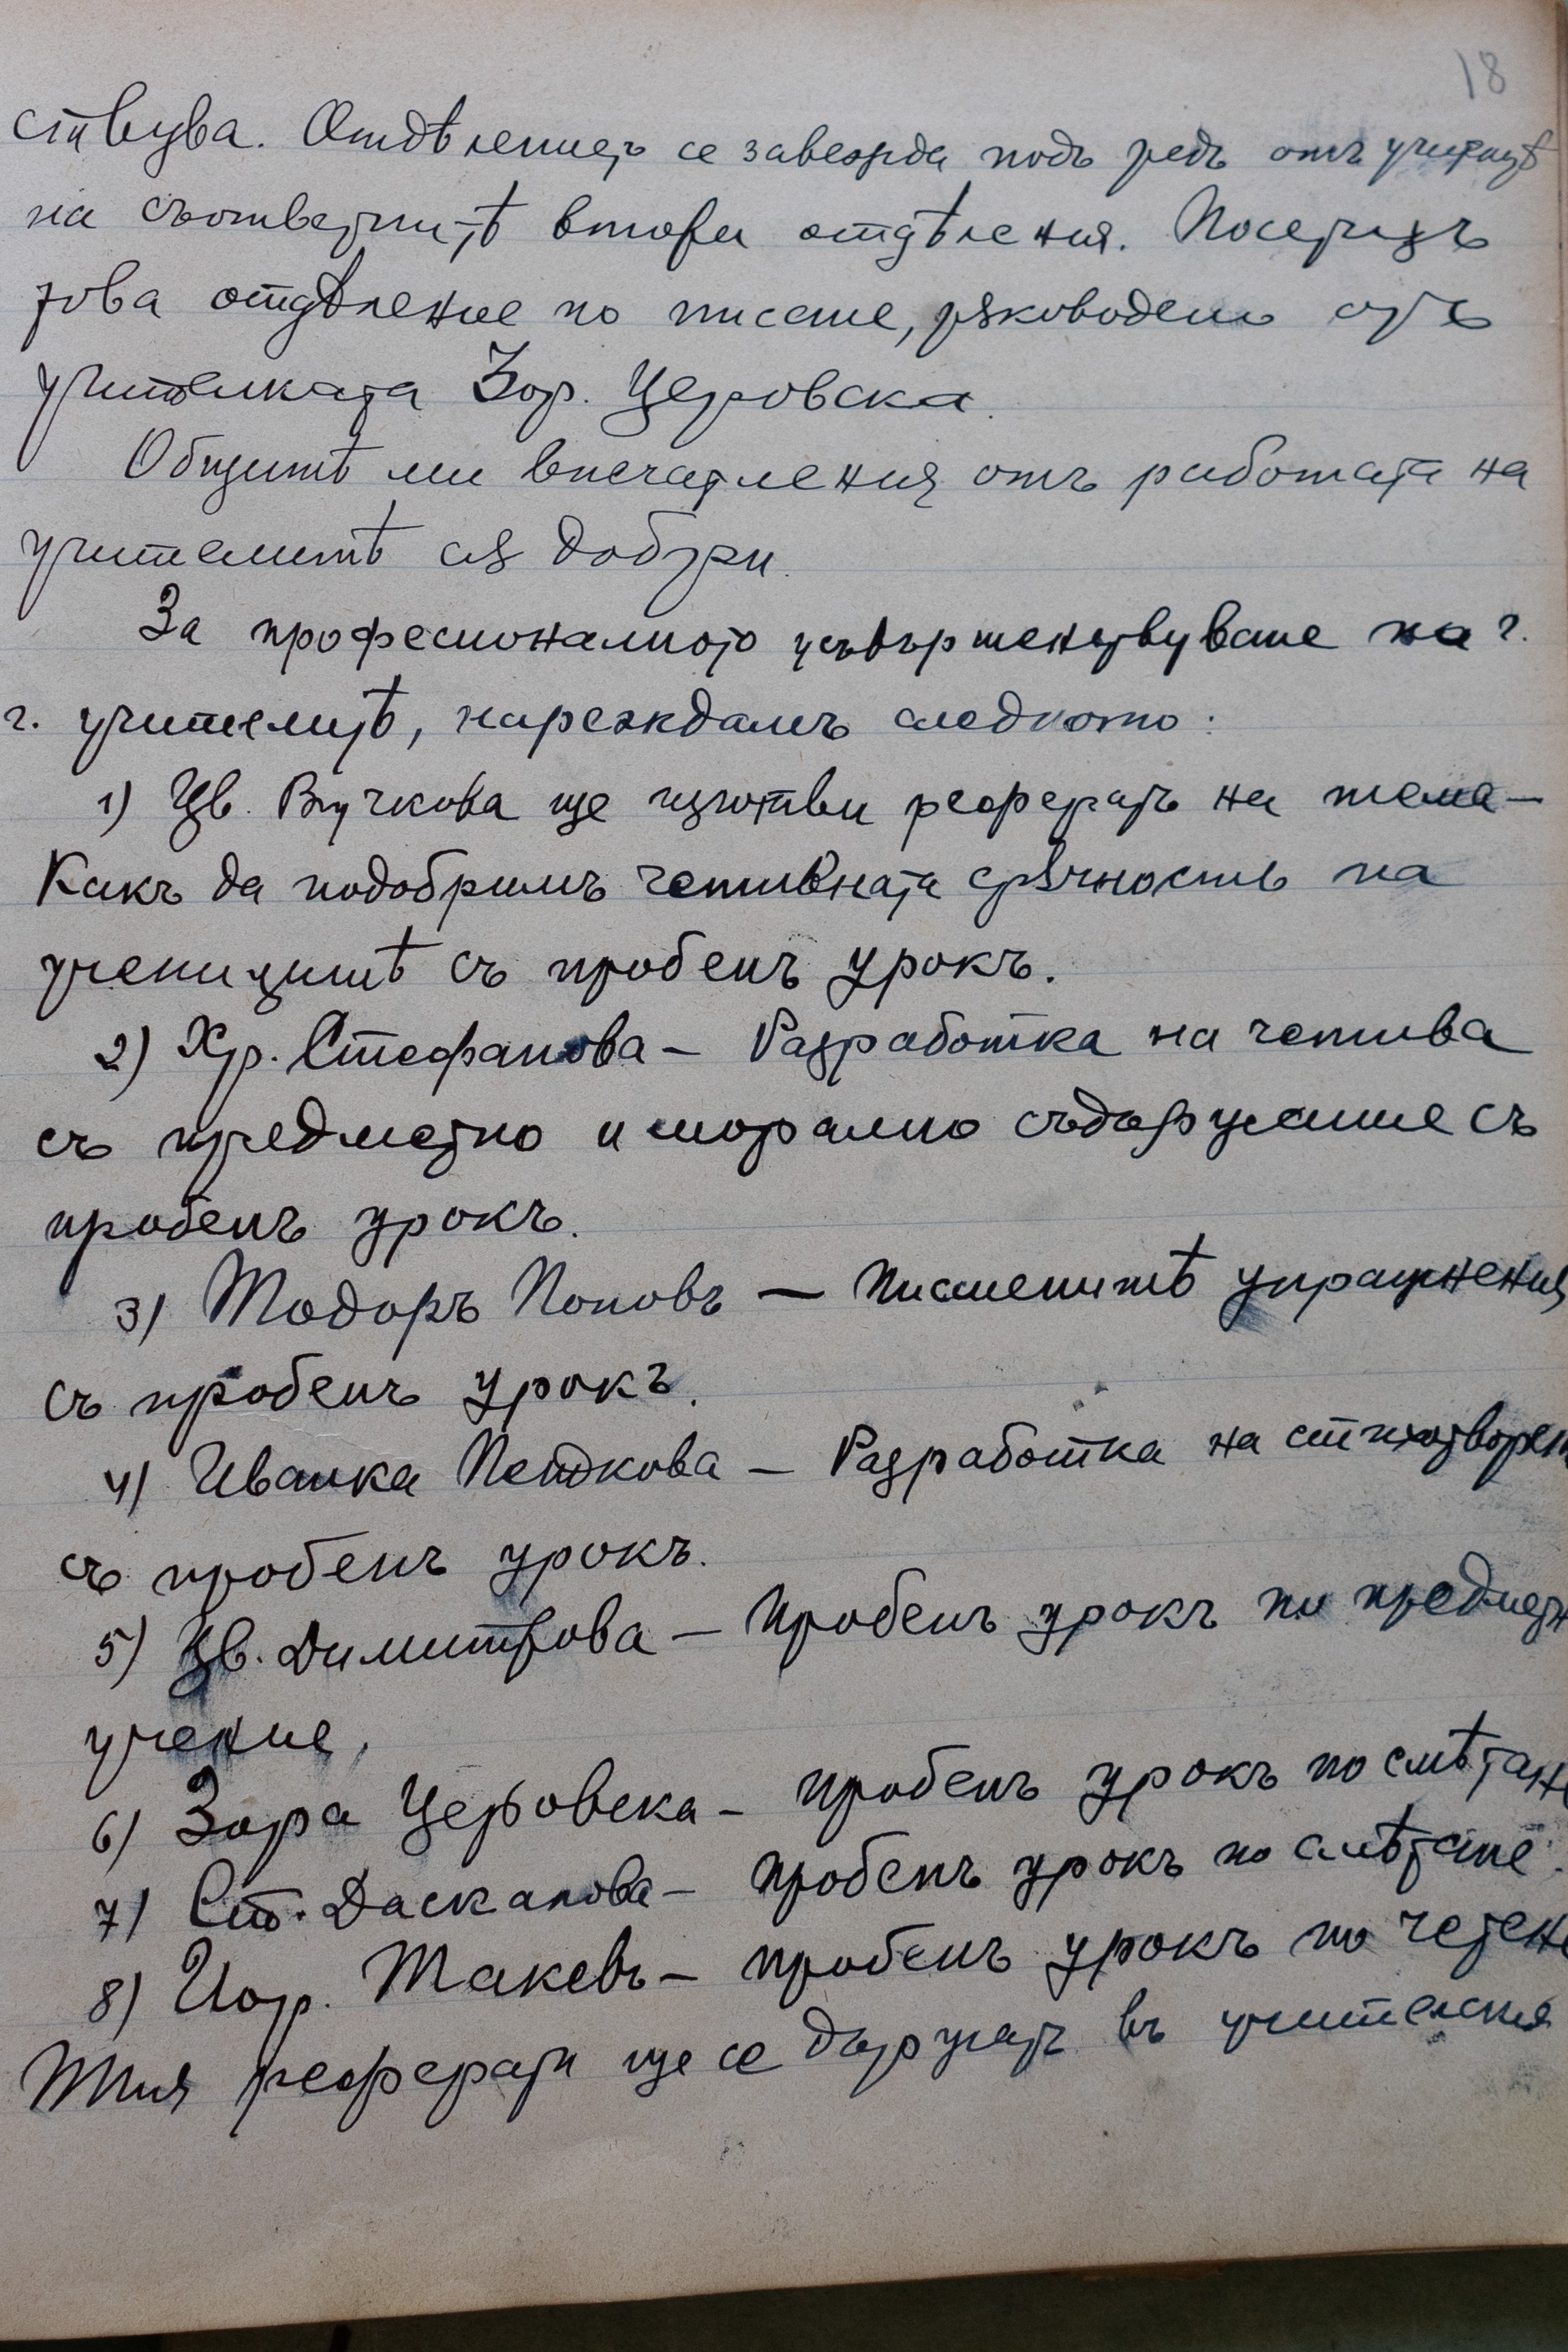 18
ствува. Отдѣлението се завежда подъ редъ отъ
на съответнитѣ втори отдѣления. Посетихъ
това отдѣление по писане, рѫководено отъ
учителката Зор. Церовска.
Общитѣ ми впечатления отъ работата на
учителитѣ сѫ добри.
За професионалното усъвършенствуване на г.
г. учителитѣ, нареждамъ следното:
1) Цв. Вучкова ще изготви рефератъ на тема –
Какъ да подобримъ четивната срѫчность на
ученицитѣ съ пробенъ урокъ.
2) Хр. Стефанова – Разработка на четива
съ предметно и морално съдържание съ
пробенъ урокъ.
3) Тодоръ Поповъ – Писменитѣ упражнения
съ пробенъ урокъ.
4) Иванка Петкова – Разработка на стихотворен
съ пробенъ урокъ.
5) Цв. Димитрова – Пробенъ урокъ по предметн
учение,
6) Зора Церовска – пробенъ урокъ по смѣтане
7) Ст. Даскалова – пробенъ урокъ по смѣтане.
8) Йор. Такевъ – пробенъ урокъ по четене
Тия реферати ще се държатъ въ учителския